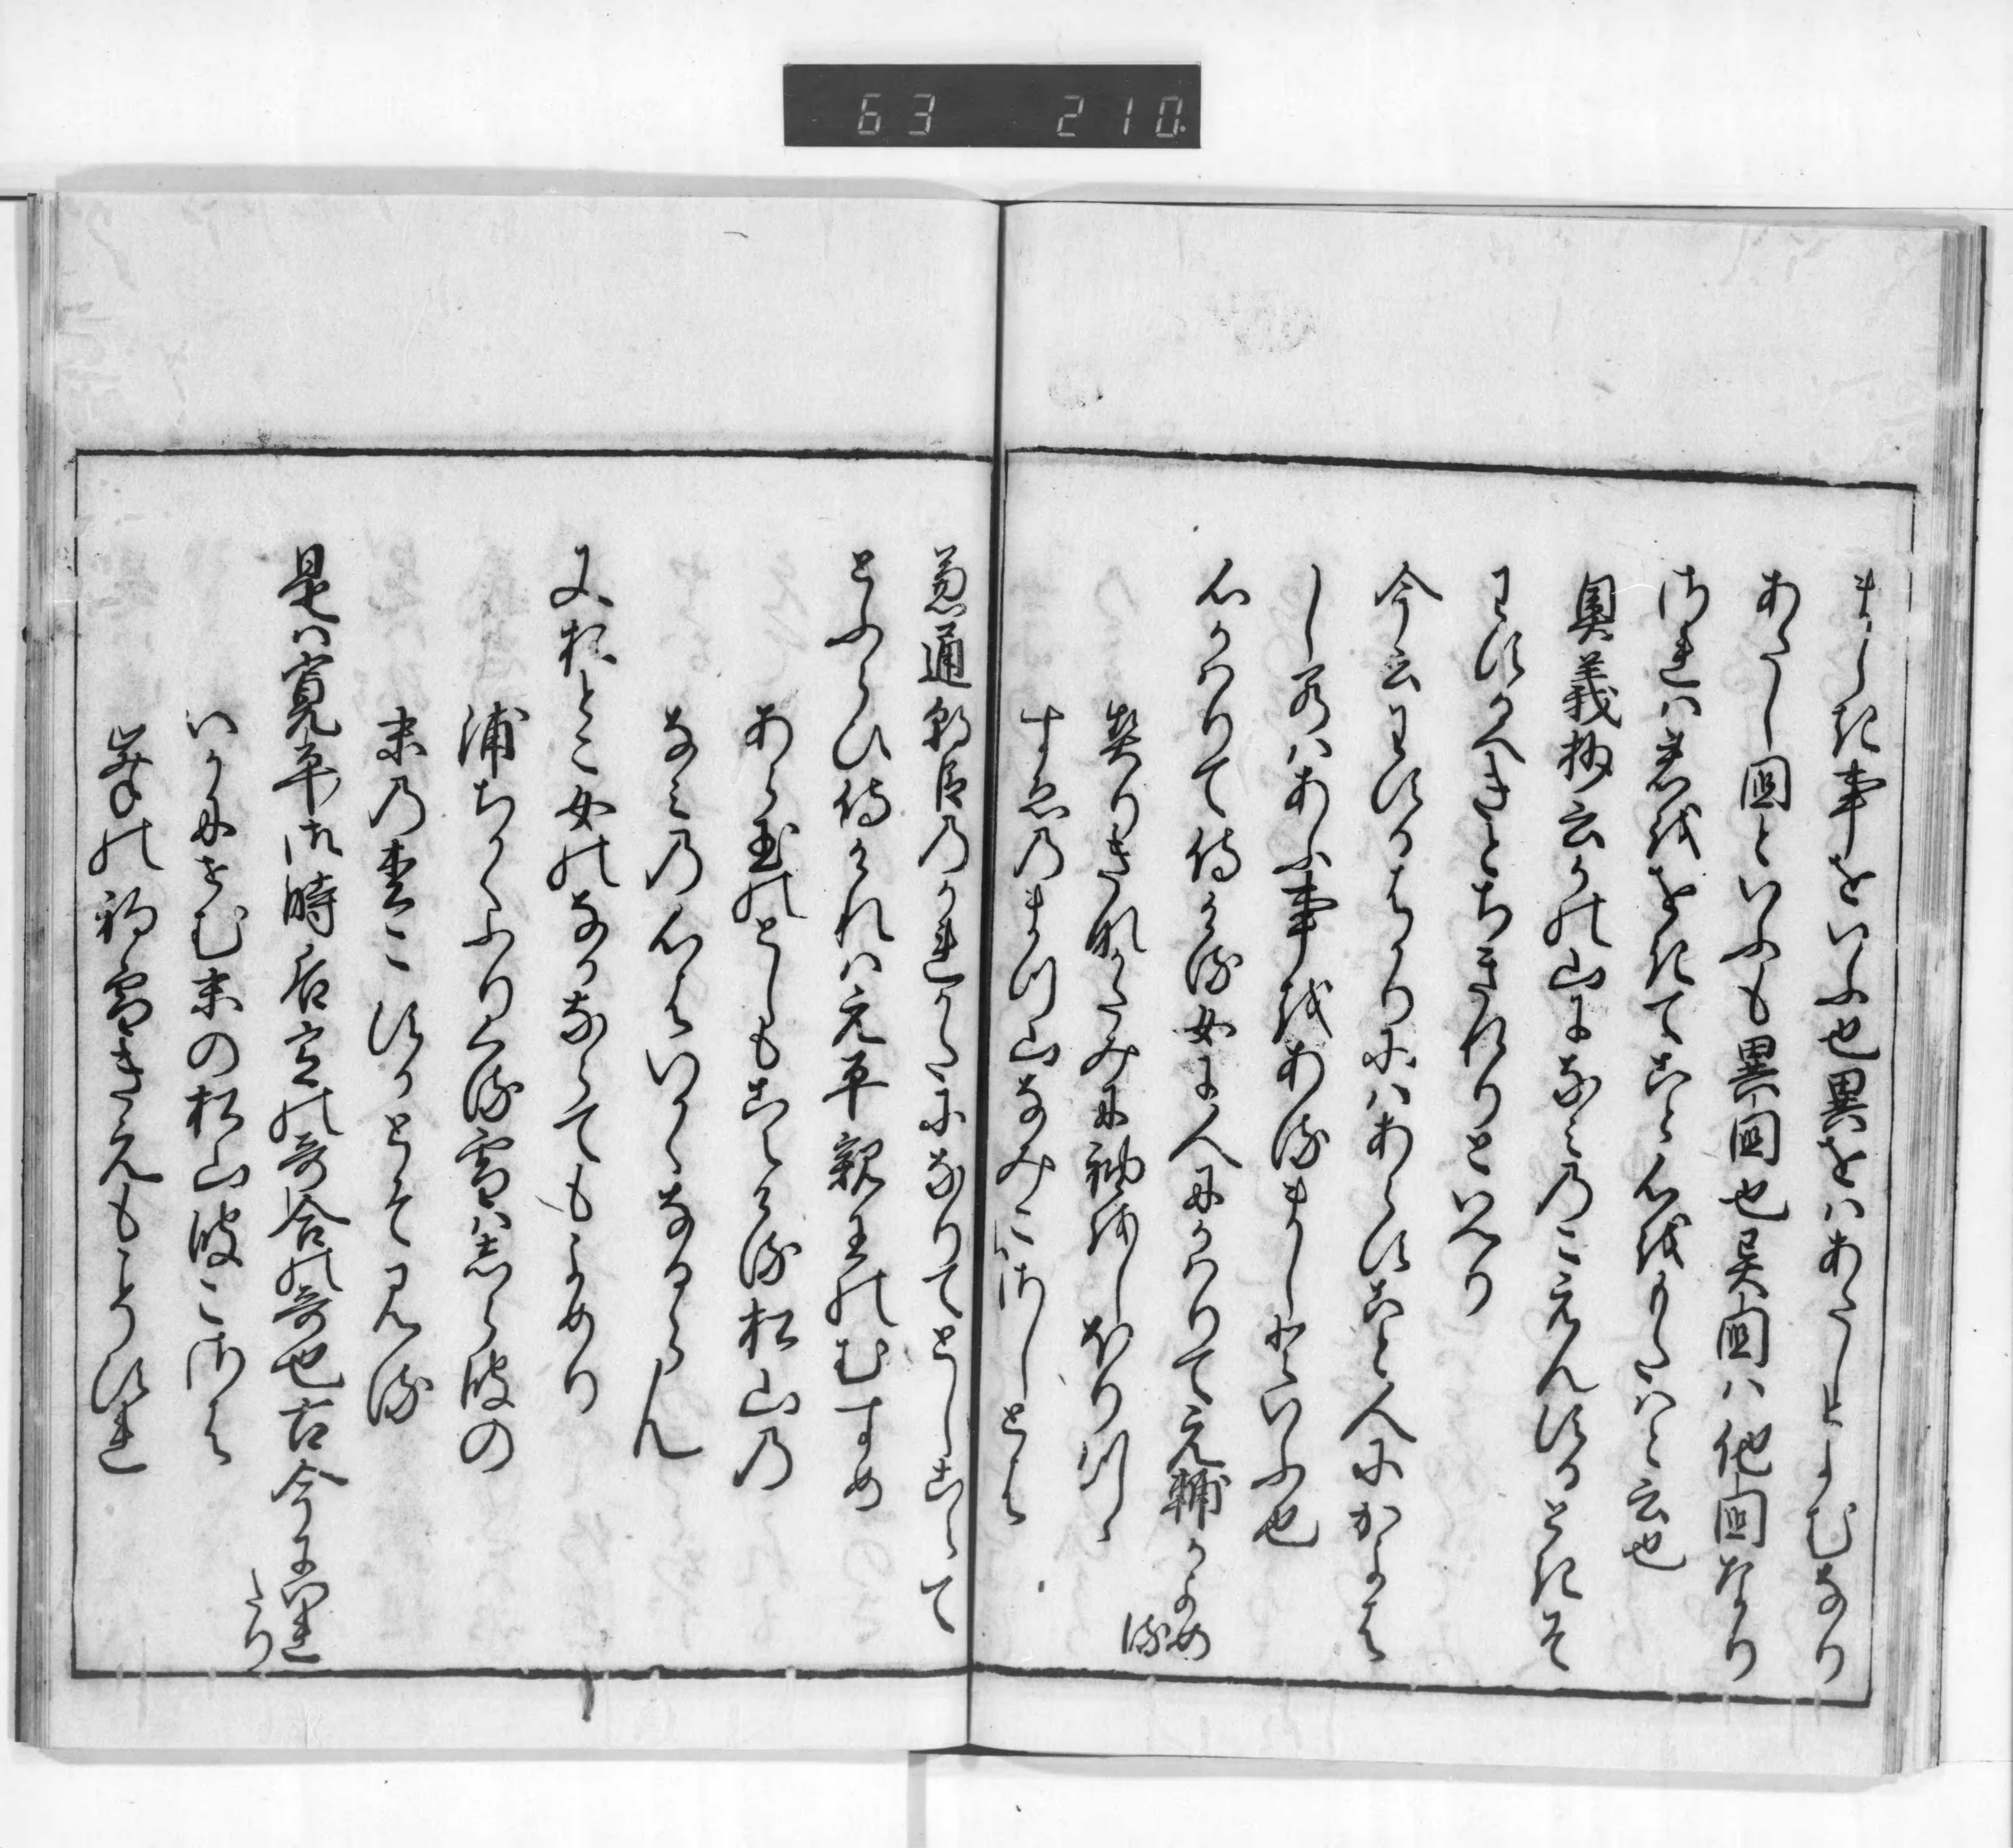 63 210
ましき事をいふ也異をはあたしとよむなり
あたし国といふも異国也異国ハ他国なり
されハ君をおきてこと心をもたハと云也
奥義抄云かの山になみのこえん時そ
わするへきとちきれりといへり
今云わするはかりにハあらすこと人にかよは
し若ハあふ事をあるましきといふ也
心かはりて侍ける女に人にかはりて元輔かよめ
る
契りきなかたみに袖をしほりつゝ
すゑのまつ山なみこさしとは
兼通朝臣のかれかたになりてとしこして
とふらひ侍けれハ元平親王のむすめ
あら玉のとしもこえける松山の
なみの心はいかゝなるらん
又松とこ女のなかならてもよめり
浦ちかくふりくる雪ハしら波の
末の松こすかとそ見る
是ハ寛平御時后宮の哥合の哥也古今に入れ
たり
いかにせむ末の松山波こさは
峯の初雪きえもこそすれ